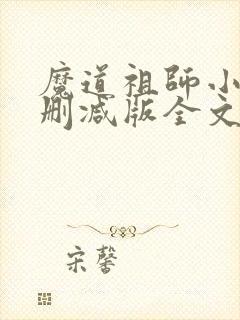 魔道祖師小
刪減版全文
宋馨